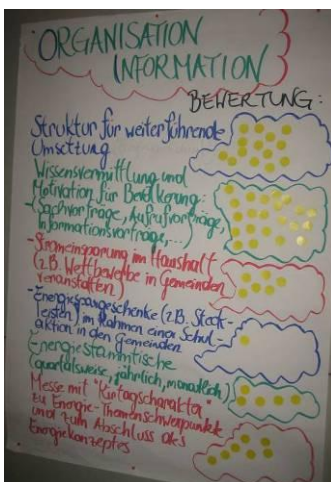 ORGANISATION
INFORMATION
BEWERTUNG:
Struktur für weiterführende
Umsetzung
Wissensvermittlung und
Motivation für Bevölkerung:
(Sachvorträge, Aufrufvorträge,
Informationsvorträge,...)
-Stromeinsparung im Haushalt
(z.B. Wettbewerbe in Gemeinden
veranstalten)
-Energiespargeschenke (z.B. Steck-
leisten) im Rahmen einer Schul-
aktion in den Gemeinden
Energiestammtische
(quartalsweise, jährlich, monatlich)
Messe mit "Kirtagscharakter"
zu Energie-Themenschwerpunkte
und zum Abschluss des
Energiekonzeptes